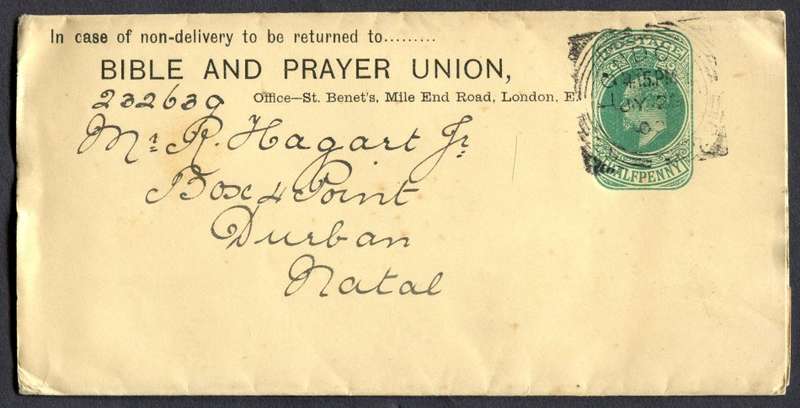 In case of non-delivery to be returned to.........
BIBLE AND PRAYER UNION,
232639 Office—St. Benet's, Mile End Road, London, E.
Mr. R. Hagart Jr.
Box 4 Point
Durban
Natal
POSTAGE
4.15.PM
JY 2
HALFPENNY